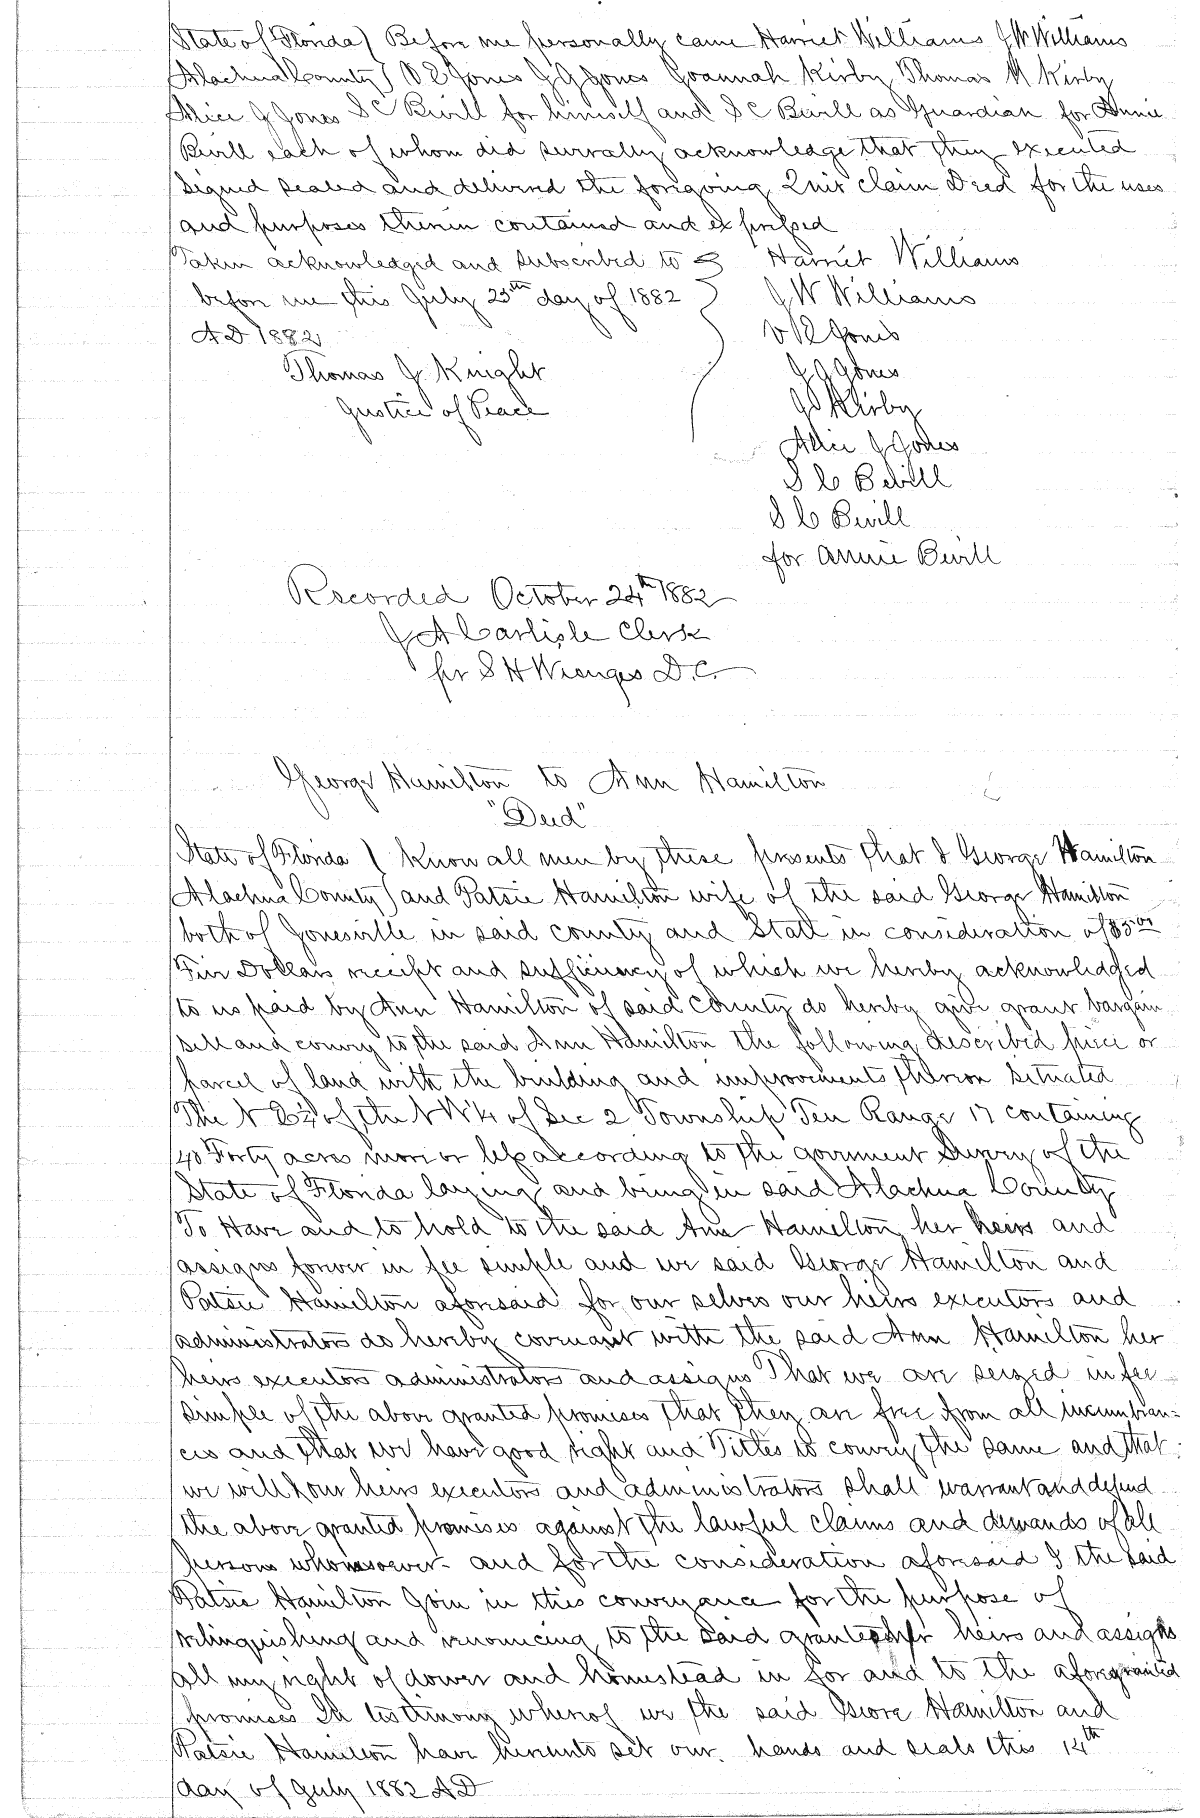 State of Florida } Before me personally came Harriet Williams J W Williams
Alachua County } V R Jones J G Jones Joannah Kirby Thomas M Kirby
Alice J Jones S C Bevill for himself and S C Bevill as Guardian for Annie
Bevill each of whom did severally acknowledge that they executed
signed sealed and delivered the foregoing Quit claim Deed for the uses
and purposes therein contained and expressed
Taken acknowledged and subscribed to } Harriet Williams
before me this July 25th day of 1882 J W Williams
A D 1882 V R Jones
Thomas J Knight J G Jones
Justice of Peace J D Kirby
Alice J Jones
S C Bevill
S C Bevill
for Annie Bevill
Recorded October 24th 1882
J A Carlisle Clerk
per S H Wienges D.C.
George Hamilton to Ann Hamilton
"Deed"
State of Florida } Know all men by these presents that I George Hamilton
Alachua County } and Patsie Hamilton wife of the said George Hamilton
both of Jonesville in said county and State in consideration of $5.00
Five Dollars receipt and sufficiency of which we hereby acknowledged
to us paid by Ann Hamilton of said County do hereby give grant bargain
sell and convey to the said Ann Hamilton the following described piece or
parcel of land with the building and improvements thereon situated
The N E 1/4 of the N W 1/4 of Sec 2 Township Ten Range 17 containing
40 Forty acres more or less according to the goverment Survey of the
State of Florida laying and being in said Alachua County
To Have and to hold to the said Ann Hamilton her heirs and
assigns forever in fee simple and we said George Hamilton and
Patsie Hamilton aforesaid for our selves our heirs executors and
administrators do hereby covenant with the said Ann Hamilton her
heirs executors administrators and assigns That we are seized in fee
simple of the above granted premises that they are free from all incumbran=
ces and that we have good right and Titles to convey the same and that
we will & our heirs executors and administrators shall warrant and defend
the above granted premises against the lawful claims and demands of all
persons whomsoever and for the consideration aforesaid I the said
Patsie Hamilton Join in this conveyance for the purpose of
relinquishing and renouncing to the said grantee her heirs and assigns
all my right of dower and homestead in for and to the aforegranted
premises In testimony whereof we the said Geore Hamilton and
Patsie Hamilton have hereunto set our hands and seals this 14th
day of July 1882 A D